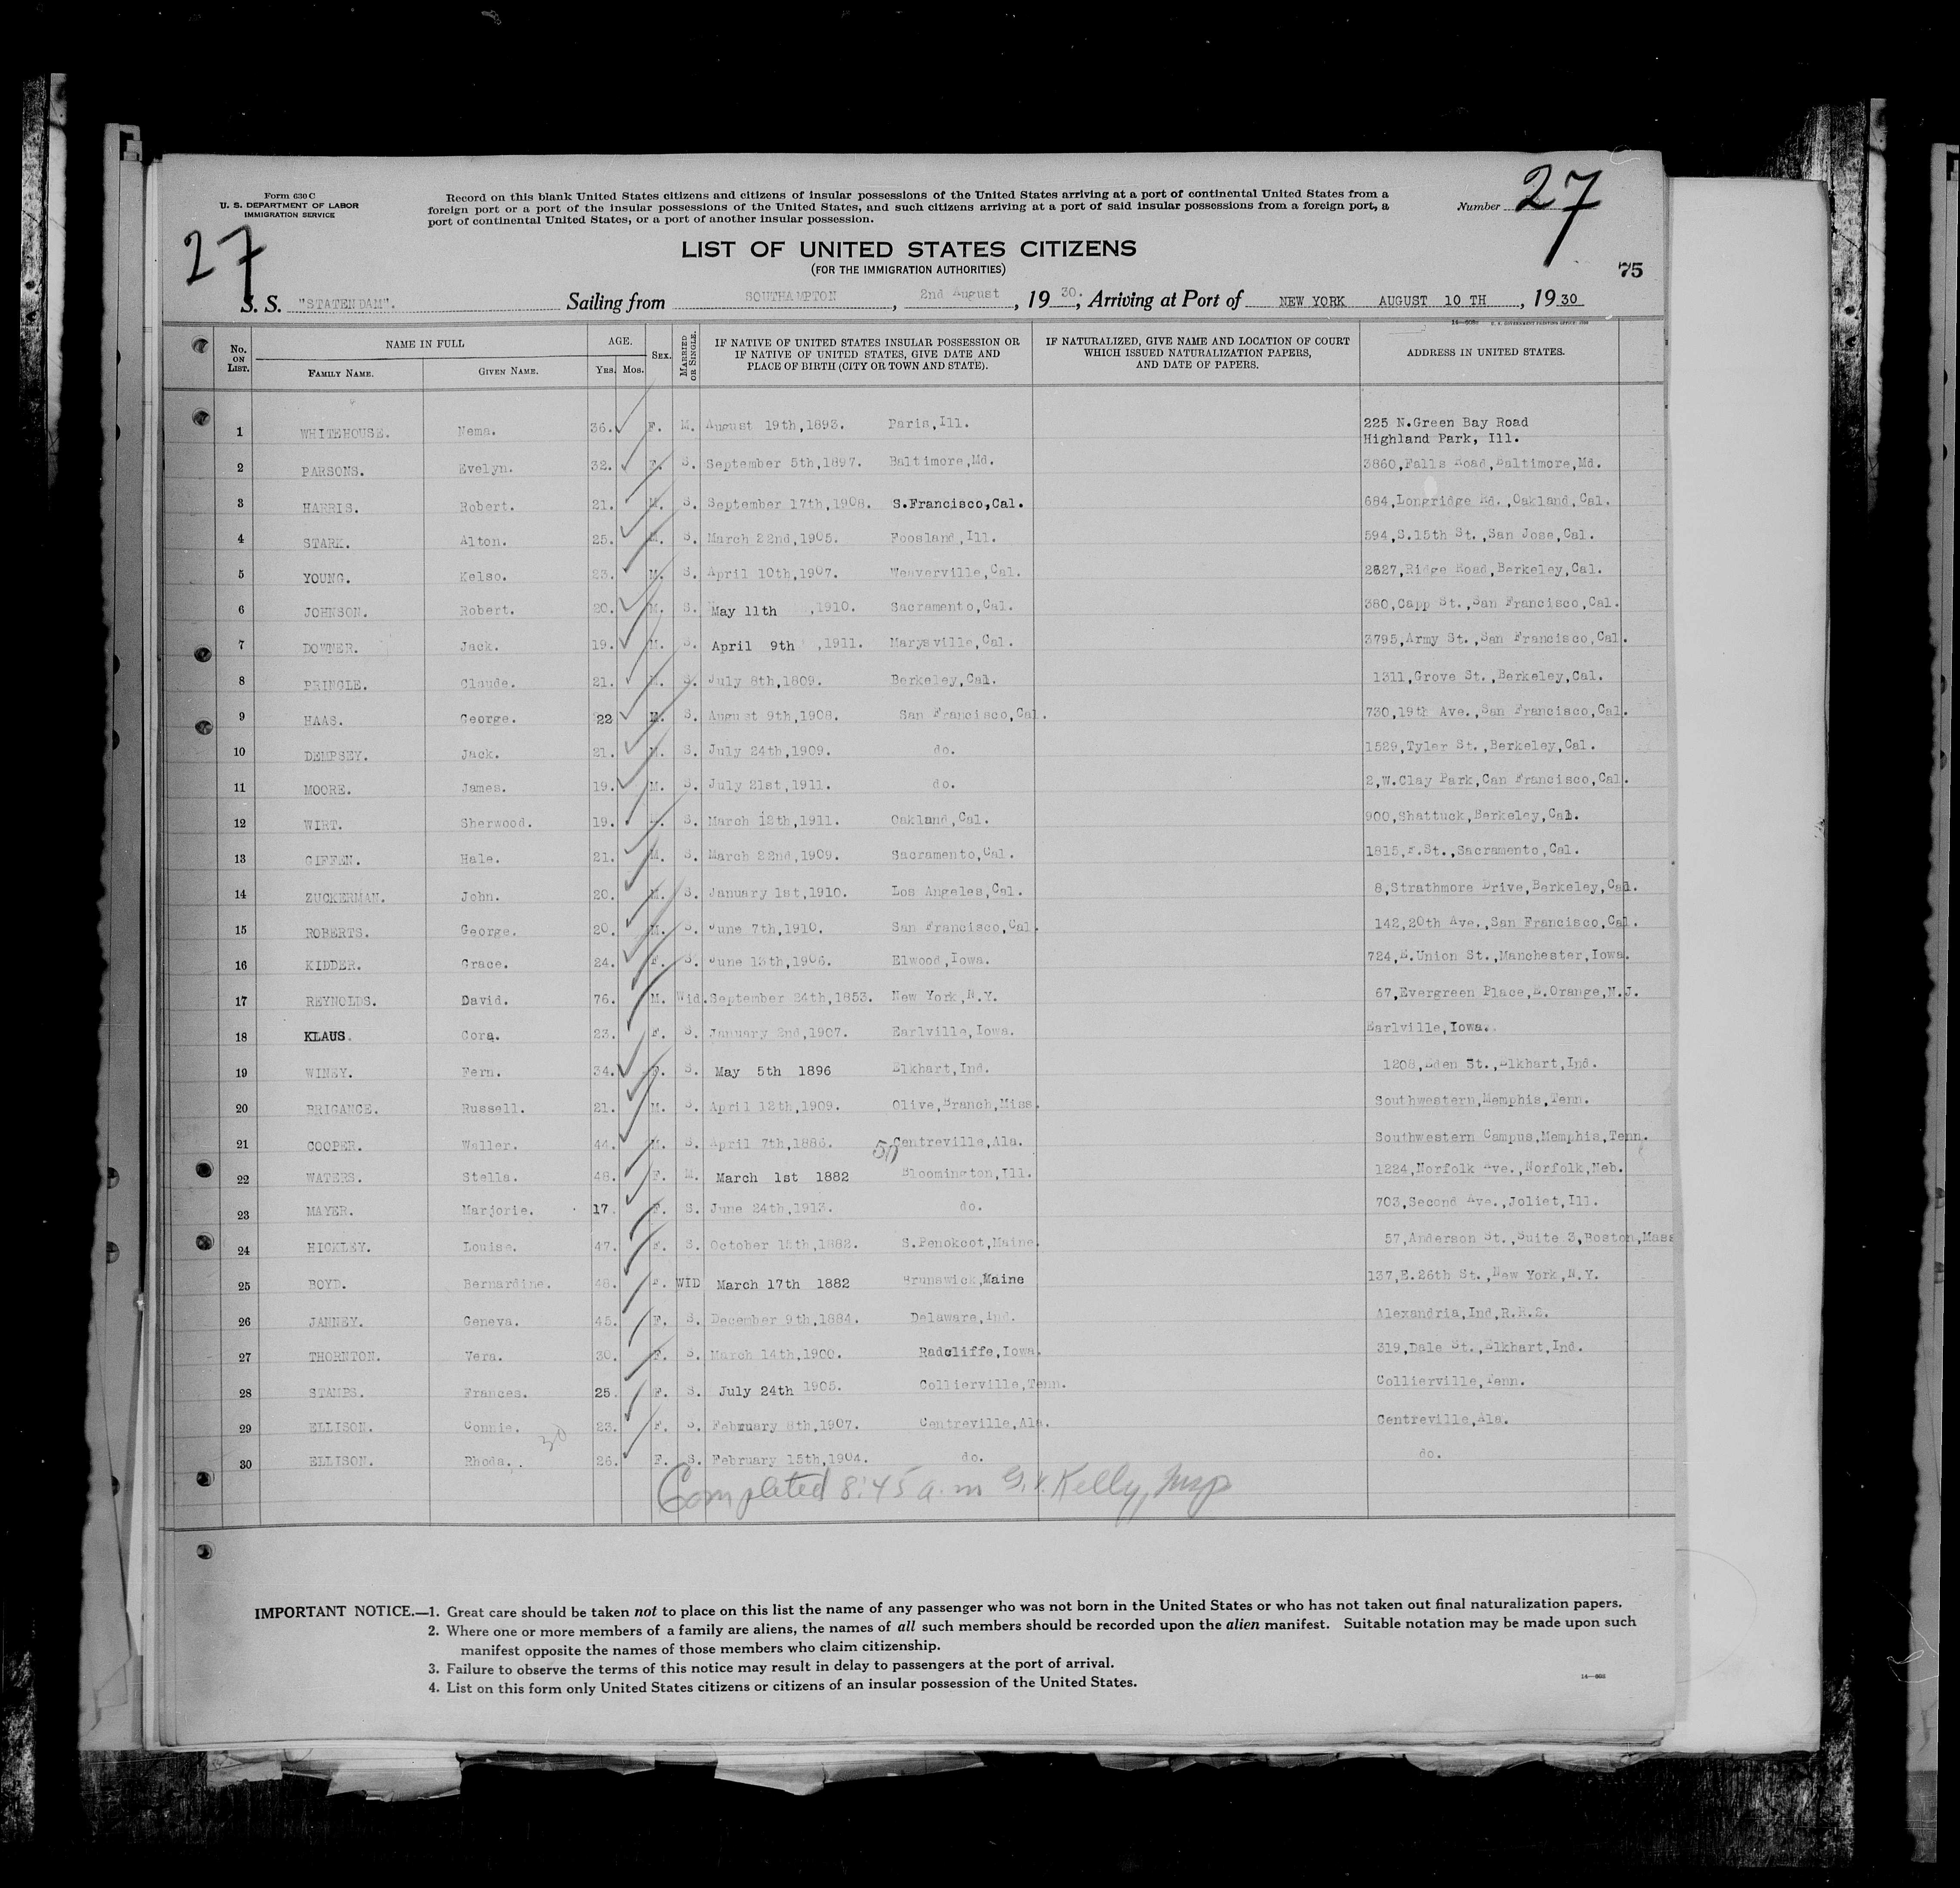 Form 630 C
U. S. DEPARTMENT OF LABOR
IMMIGRATION SERVICE
Record on this blank United States citizens and citizens of insular possessions of the United States arriving at a port of continental United States from a
foreign port or a port of the insular possessions of the United States, and such citizens arriving at a port of said insular possessions from a foreign port, a
port of continental United States, or a port of another insular possession.
Number 27
27
LIST OF UNITED STATES CITIZENS
(FOR THE IMMIGRATION AUTHORITIES)
75
S. S. "STATENDAM". Sailing from SOUTHAMPTON, 2nd August, 19 30.; Arriving at Port of NEW YORK AUGUST 10 TH, 19 30
No. ON LIST. NAME IN FULL FAMILY NAME. GIVEN NAME. AGE. YRS. MOS. SEX. MARRIED OR SINGLE. IF NATIVE OF UNITED STATES INSULAR POSSESSION OR IF NATIVE OF UNITED STATES, GIVE DATE AND PLACE OF BIRTH (CITY OR TOWN AND STATE). IF NATURALIZED, GIVE NAME AND LOCATION OF COURT WHICH ISSUED NATURALIZATION PAPERS, AND DATE OF PAPERS. ADDRESS IN UNITED STATES.
1 WHITEHOUSE. Nema. 36. F. M. August 19th,1893. Paris,Ill. 225 N.Green Bay Road
Highland Park, Ill.
2 PARSONS. Evelyn. 32. F. S. September 5th,1897. Baltimore,Md. 3860,Falls Road,Baltimore,Md.
3 HARRIS. Robert. 21. M. S. September 17th,1908. S.Francisco,Cal. 684,Longridge Rd.,Oakland,Cal.
4 STARK. Alton. 25. M. S. March 22nd,1905. Foosland,Ill. 594,S.15th St.,San Jose,Cal.
5 YOUNG. Kelso. 23. M. S. April 10th,1907. Weaverville,Cal. 2627,Ridge Road,Berkeley,Cal.
6 JOHNSON. Robert. 20. M. S. May 11th ,1910. Sacramento,Cal. 380,Capp St.,San Francisco,Cal.
7 DOWNER. Jack. 19. M. S. April 9th ,1911. Marysville,Cal. 3795,Army St.,San Francisco,Cal.
8 PRINGLE. Claude. 21. M. S. July 8th,1809. Berkeley,Cal. 1311,Grove St.,Berkeley,Cal.
9 HAAS. George. 22 M. S. August 9th,1908. San Francisco,Cal. 730,19th Ave.,San Francisco,Cal.
10 DEMPSEY. Jack. 21. M. S. July 24th,1909. do. 1529,Tyler St.,Berkeley,Cal.
11 MOORE. James. 19. M. S. July 21st,1911. do. 2,W.Clay Park,Can Francisco,Cal.
12 WIRT. Sherwood. 19. S. March 12th,1911. Oakland,Cal. 900,Shattuck,Berkeley,Cal.
13 GIFFEN. Hale. 21. M. S. March 22nd,1909. Sacramento,Cal. 1815, St.,Sacramento,Cal.
14 ZUCKERMAN. John. 20. M. S. January 1st,1910. Los Angeles,Cal. 8,Strathmore Drive,Berkeley,Cal.
15 ROBERTS. George. 20. M. S. June 7th,1910. San Francisco,Cal. 142,20th Ave.,San Francisco,Cal.
16 KIDDER. Grace. 24. F. S. June 13th,1906. Elwood,Iowa. 724,E.Union St.,Manchester,Iowa.
17 REYNOLDS. David. 76. M. Wid. September 24th,1853. New York,N.Y. 67,Evergreen Place,E.Orange,N.J.
18 KLAUS. Cora. 23. F. S. January 2nd,1907. Earlville,Iowa. Earlville,Iowa.
19 WINEY. Fern. 34. F. S. May 5th 1896 Elkhart,Ind. 1208,Eden St.,Elkhart,Ind.
20 BRIGANCE. Russell. 21. M. S. April 12th,1909. Olive,Branch,Miss. Southwestern,Memphis,Tenn.
21 COOPER. Waller. 44. M. S. April 7th,1886. Centreville,Ala. Southwestern Campus,Memphis,Tenn.
22 WATERS. Stella. 48. F. M. March 1st 1882 Bloomington,Ill. 1224,Norfolk Ave.,Norfolk,Neb.
23 MAYER. Marjorie. 17. F. S. June 24th,1913. do. 703,Second Ave.,Joliet,Ill.
24 HICKLEY. Louise. 47. F. S. October 15th,1882. S.Penokcot,Maine. 57,Anderson St.,Suite 3,Boston,Mass
25 BOYD. Bernardine. 48. F. WID March 17th 1882 Brunswick,Maine 137,E.26th St.,New York,N.Y.
26 JANNEY. Geneva. 45. F. S. December 9th,1884. Delaware,Ind. Alexandria,Ind,R.R.2.
27 THORNTON. Vera. 30. F. S. March 14th,1900. Radcliffe,Iowa. 319,Dale St.,Elkhart,Ind.
28 STAMPS. Frances. 25. F. S. July 24th 1905. Collierville,Tenn. Collierville,Tenn.
29 ELLISON. Connie. 23. F. S. February 8th,1907. Centreville,Ala. Centreville,Ala.
30 ELLISON. Rhoda. 26. F. S. February 15th,1904. do. do.
30
Completed 8:45 a.m G.V. Kelly, Insp
IMPORTANT NOTICE.—1. Great care should be taken not to place on this list the name of any passenger who was not born in the United States or who has not taken out final naturalization papers.
2. Where one or more members of a family are aliens, the names of all such members should be recorded upon the alien manifest. Suitable notation may be made upon such
manifest opposite the names of those members who claim citizenship.
3. Failure to observe the terms of this notice may result in delay to passengers at the port of arrival.
4. List on this form only United States citizens or citizens of an insular possession of the United States.